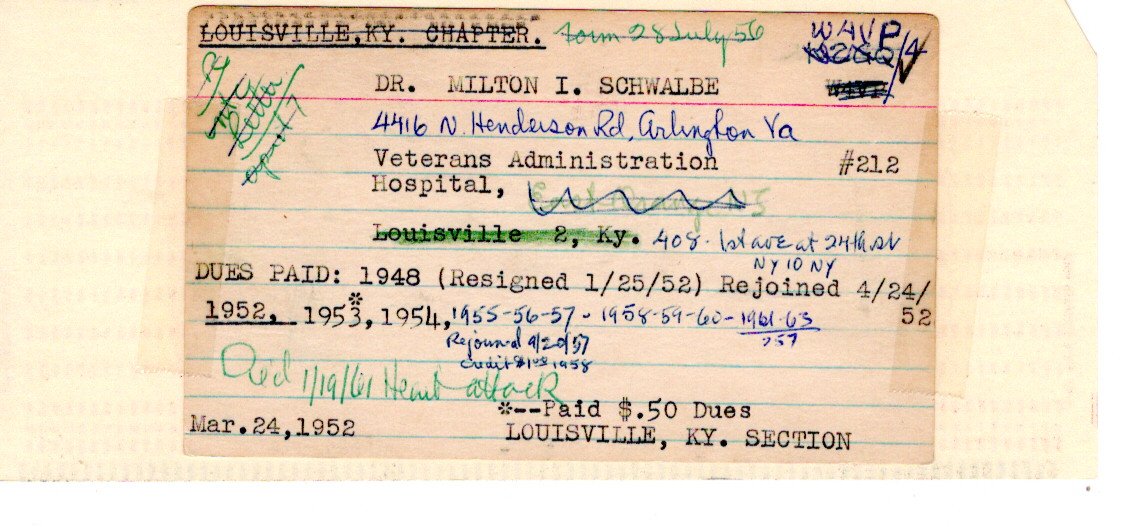 LOUISVILLE, KY. CHAPTER. form 28 July 56 WAVP/4
DR. MILTON I. SCHWALBE
4416 N. Henderson Rd, Arlington Va
Veterans Administration #212
Hospital, East Orange NJ
Louisville 2, Ky. 408 - 1st ave at 24th st
NY 10 NY
DUES PAID: 1948 (Resigned 1/25/52) Rejoined 4/24/
52
1952, 1953*, 1954, 1955-56-57 - 1958-59-60-1961-63
Rejoined 9/20/57
credit 1958
Died 1/19/61 Heart attack
*--Paid $.50 Dues
Mar.24,1952 LOUISVILLE, KY. SECTION